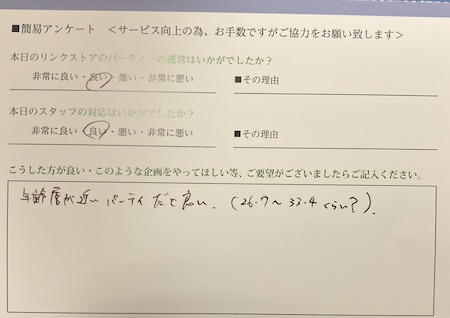 ■簡易アンケート ＜サービス向上の為、お手数ですがご協力をお願い致します＞
本日のリンクストアのパーティーの運営はいかがでしたか？
非常に良い・良い・悪い・非常に悪い ■その理由
本日のスタッフの対応はいかがでしたか？
非常に良い・良い・悪い・非常に悪い ■その理由
こうした方が良い・このような企画をやってほしい等、ご要望がございましたらご記入ください。
年齢層が近いパーティだと良い。(26.7〜33.4くらい？).